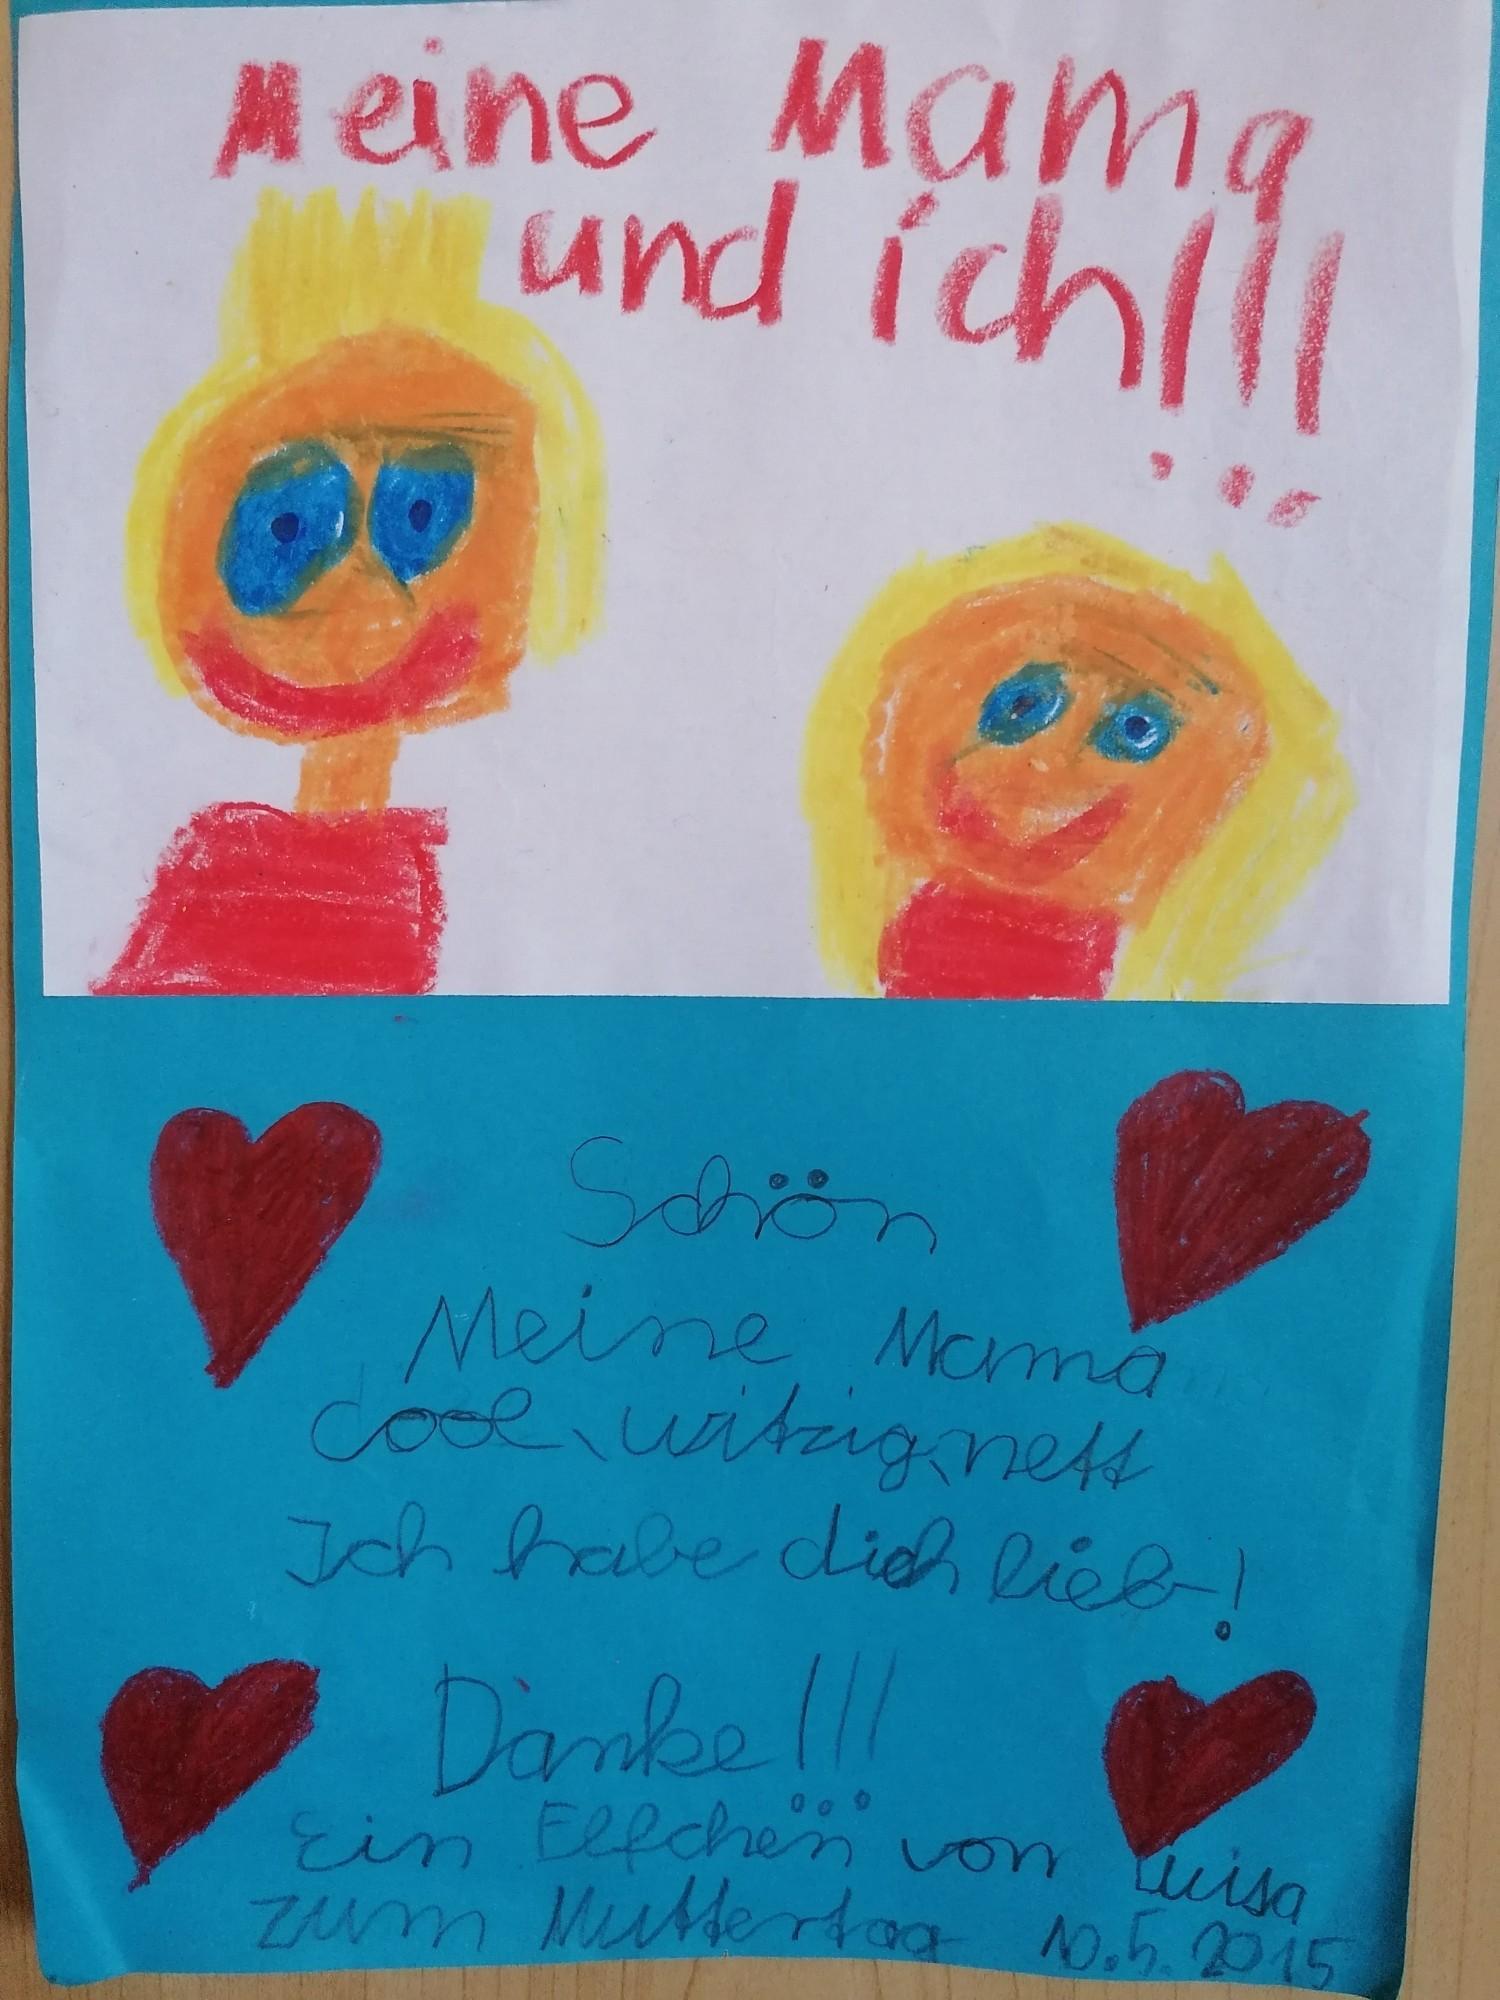 Meine Mama
und ich!!!
Schön
Meine Mama
cool, witzig, nett
Ich habe dich lieb!
Danke!!!
Ein Elfchen von Luisa
zum Muttertag 10.5.2015